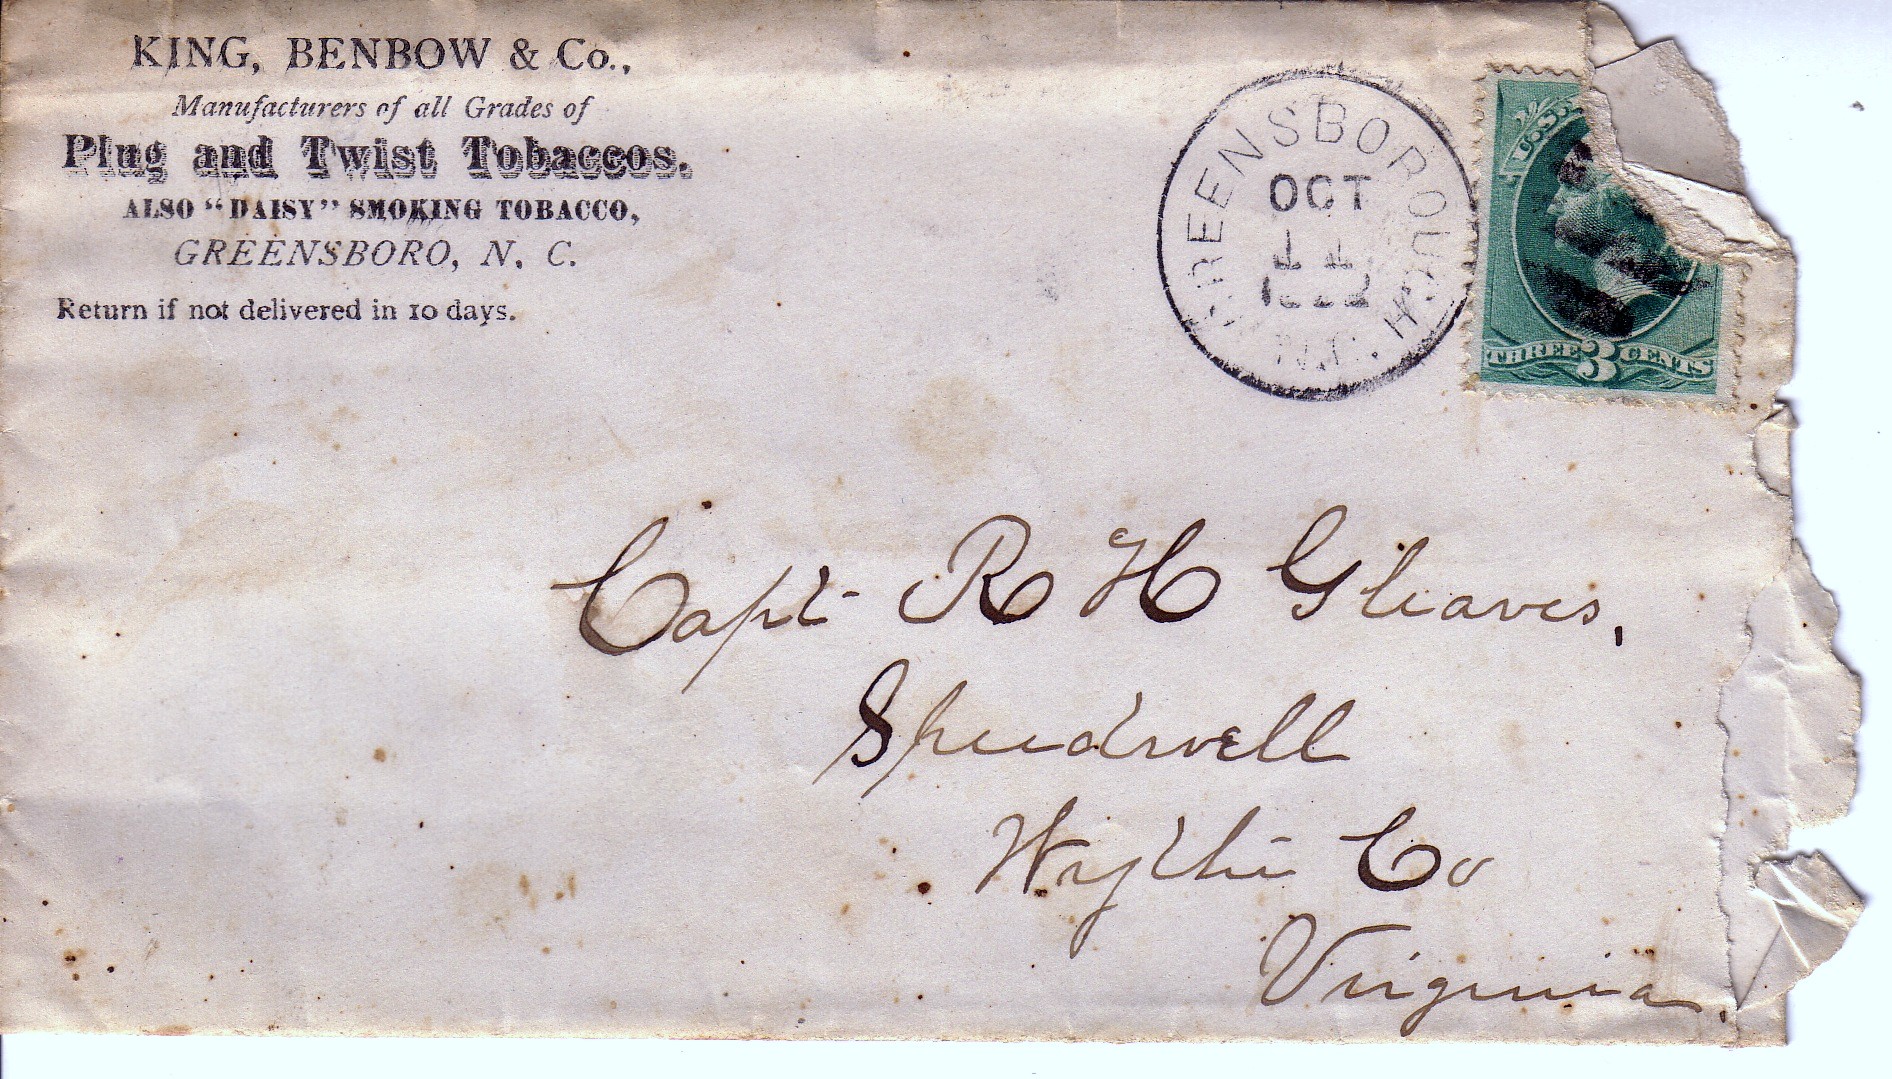 KING, BENBOW & Co.,
Manufacturers of all Grades of
Plug and Twist Tobaccos.
ALSO "DAISY" SMOKING TOBACCO,
GREENSBORO, N. C.
Return if not delivered in 10 days.
GREENSBOROUGH
OCT
11
N.C.
U.S.
THREE 3 CENTS
Capt R H Gleaves,
Speedwell
Wythe Co
Virginia.